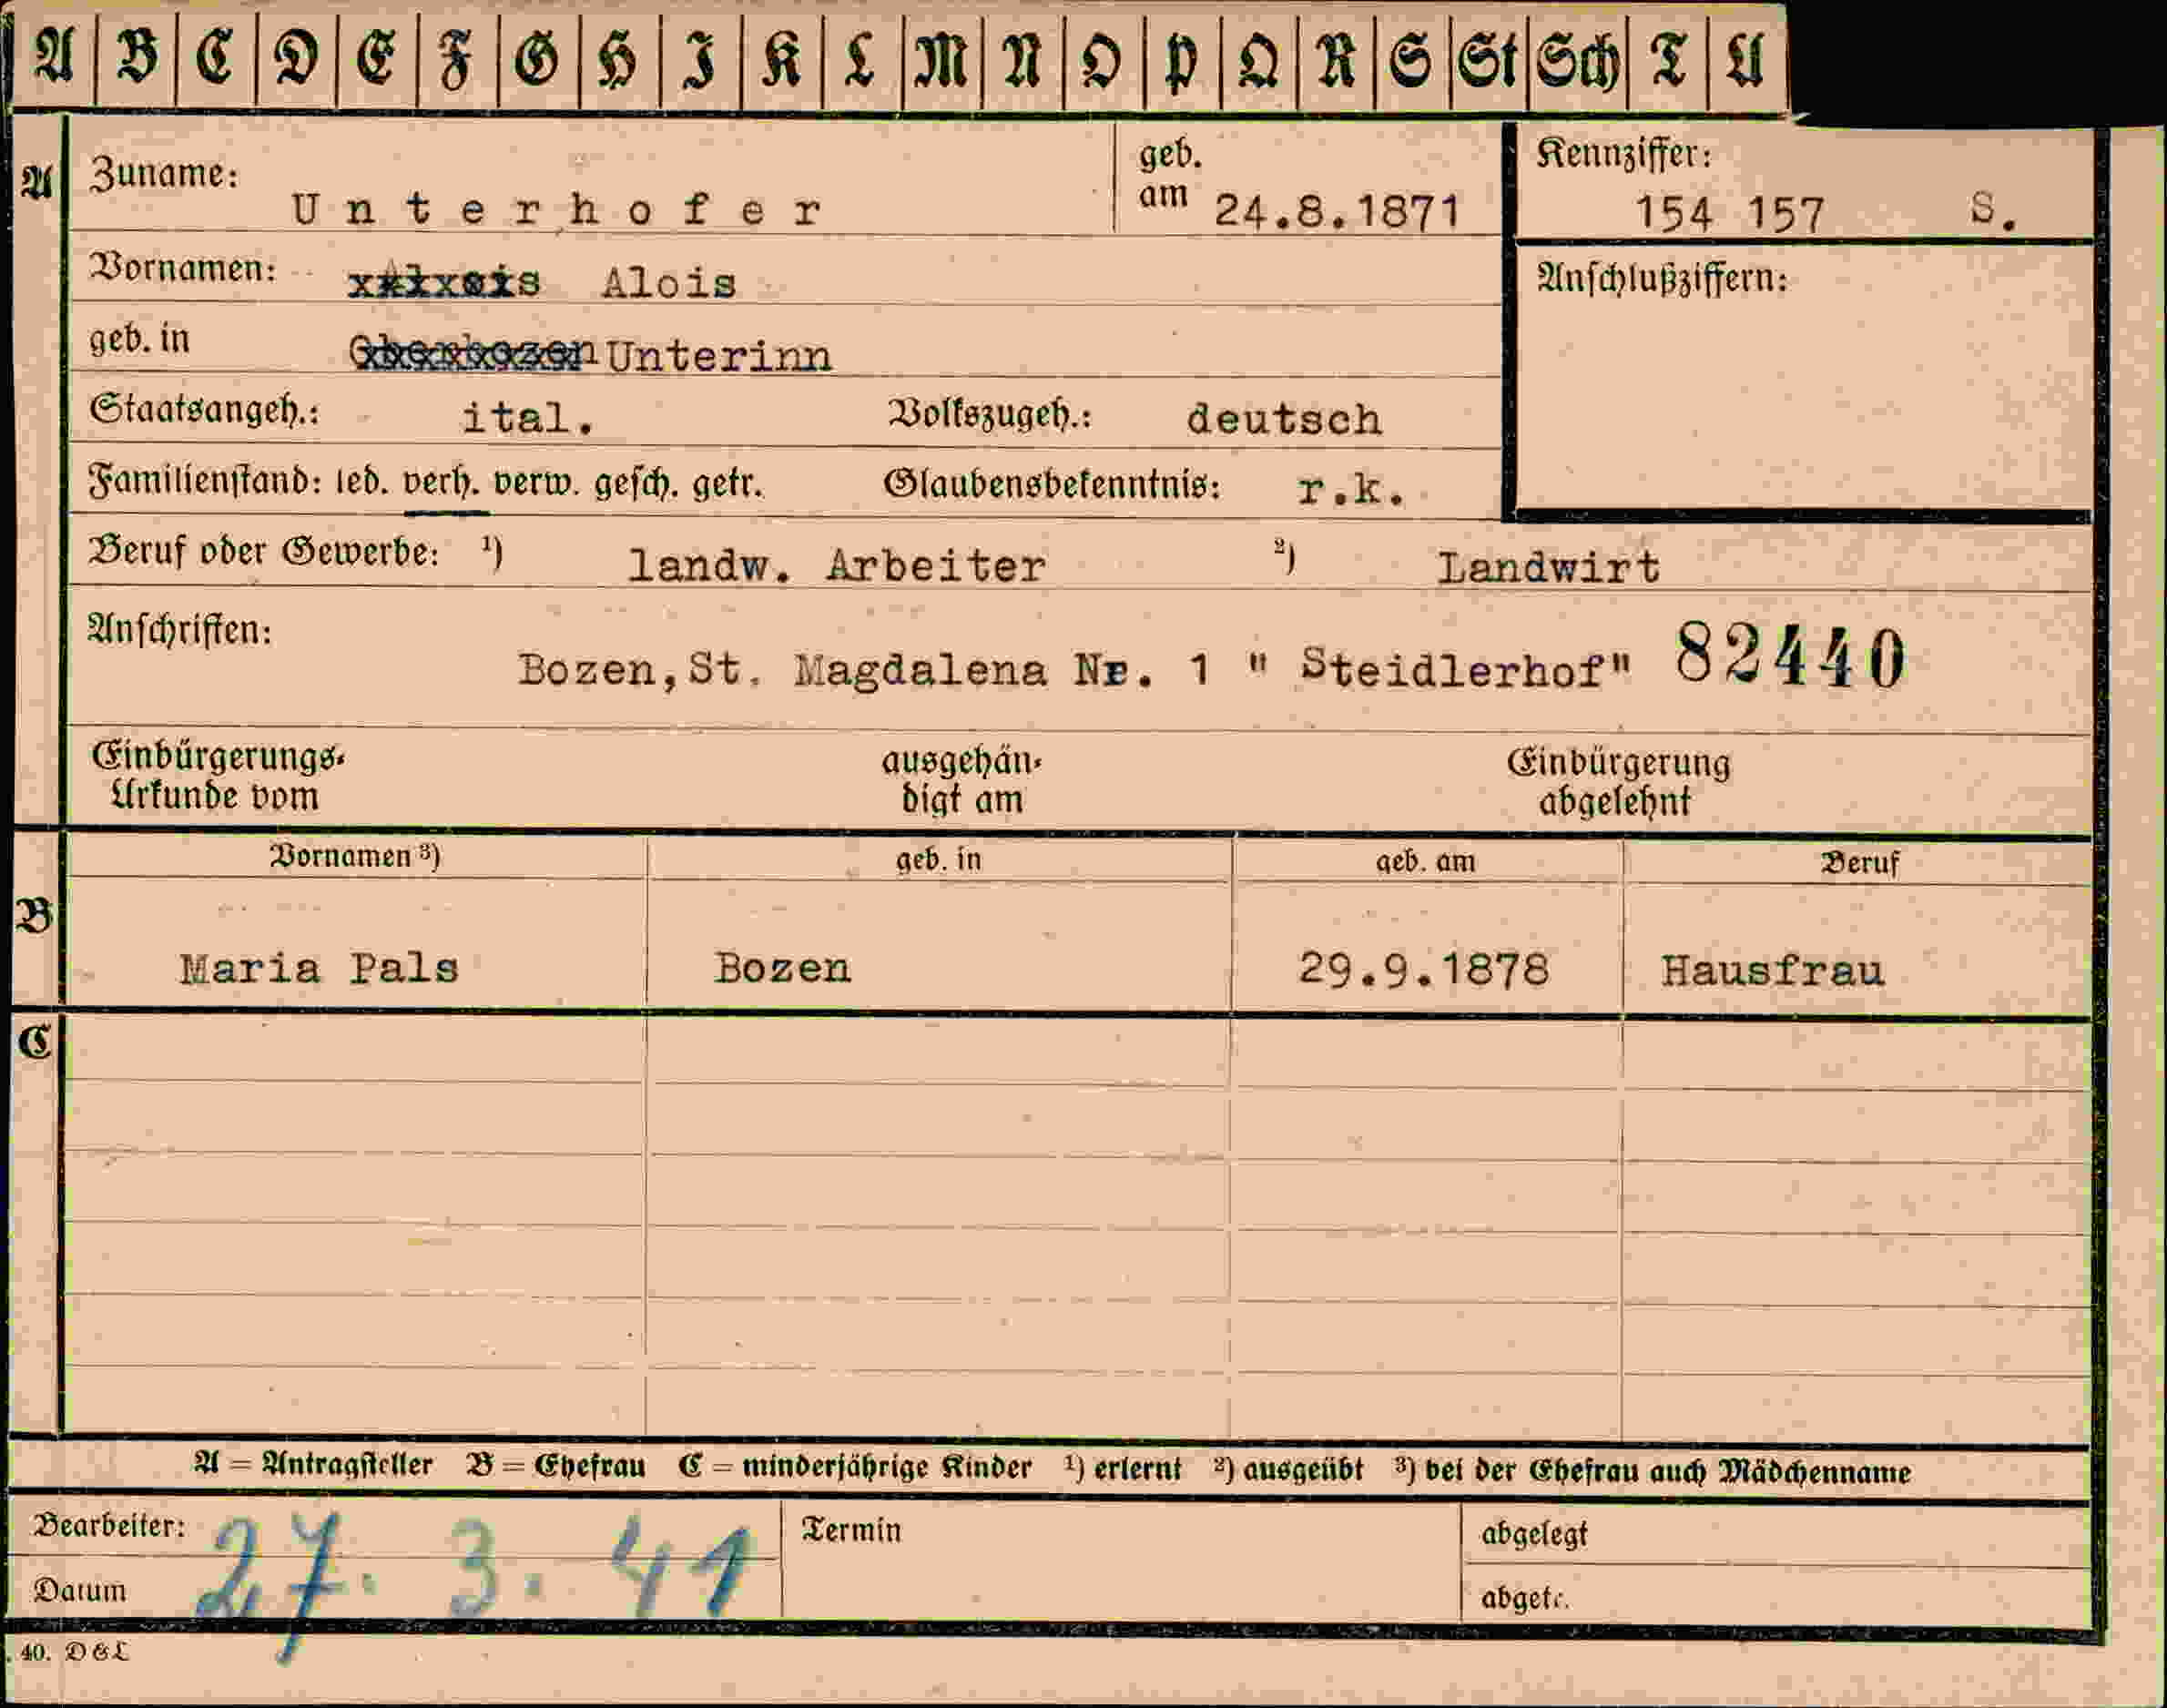 A B C D E F G H I K L M N O P Q R S St Sch T U
A Zuname: Unterhofer geb. am 24.8.1871 Kennziffer: 154 157 S.
Vornamen: Alois Anschlußziffern:
geb. in Oberbozen Unterinn
Staatsangeh.: ital. Volkszugeh.: deutsch
Familienstand: led. verh. verw. gesch. getr. Glaubensbekenntnis: r.k.
Beruf oder Gewerbe: ¹) landw. Arbeiter ²) Landwirt
Anschriften:
Bozen, St. Magdalena Nr. 1 " Steidlerhof" 82440
Einbürgerungs- ausgehän- Einbürgerung
Urkunde vom digt am abgelehnt
Vornamen ³) geb. in geb. am Beruf
B
Maria Pals Bozen 29.9.1878 Hausfrau
C
A = Antragsteller B = Ehefrau C = minderjährige Kinder ¹) erlernt ²) ausgeübt ³) bei der Ehefrau auch Mädchenname
Bearbeiter: Termin abgelegt
Datum 27. 3. 41 abgetr.
40. D&L